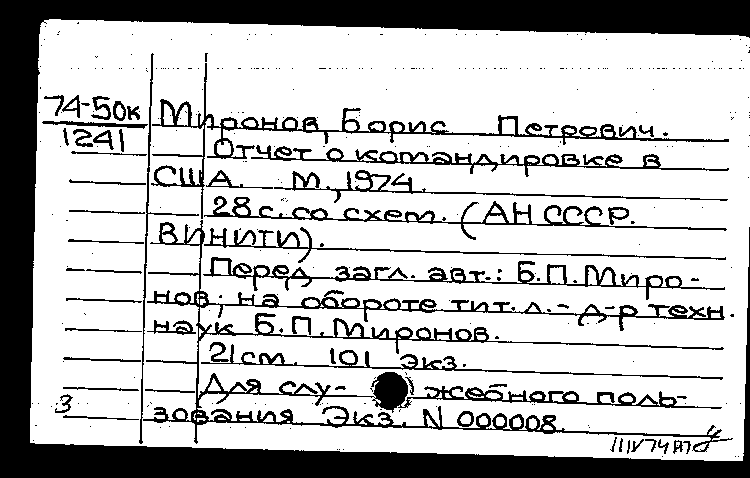 74-50к
1241
Миронов, Борис Петрович.
Отчет о командировке в
США. М., 1974.
28 с. со схем. (АН СССР.
ВИНИТИ).
Перед загл. авт.: Б.П.Миро-
нов; на обороте тит. л. - д-р техн.
наук Б.П.Миронов.
21 см. 101 экз.
Для слу- жебного поль-
зования Экз. N 000008.
3